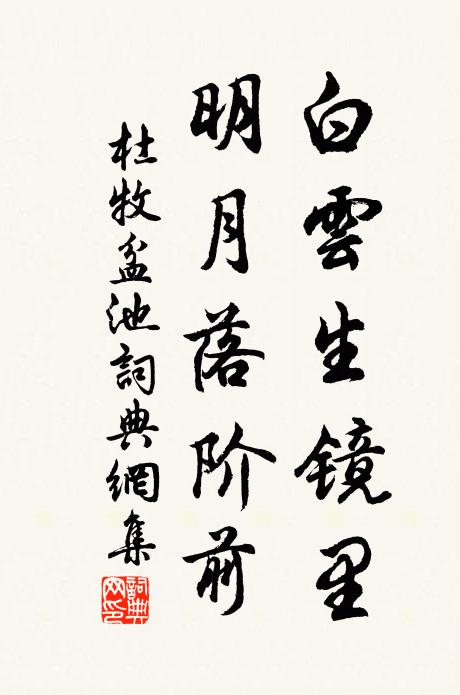 白雲生镜里
明月落阶前
杜牧盆池詞典網集
詞典網印